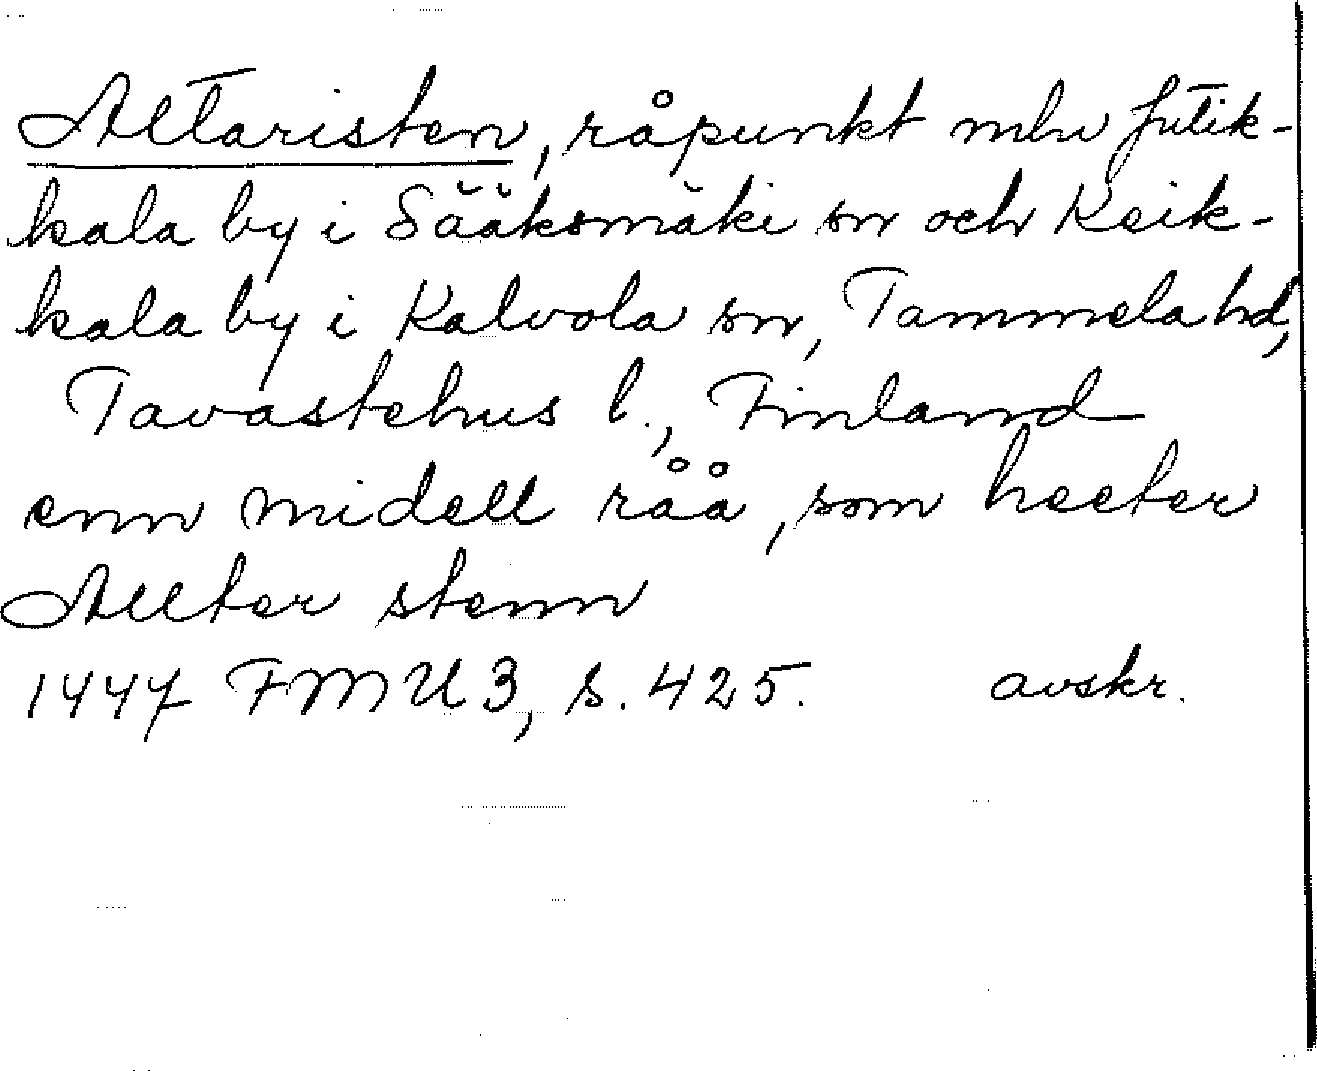 Altaristen, råpunkt mln Jutik-
kala by i Sääksmäki sn och Keik-
kala by i Kalvola sn, Tammela hd,
Tavastehus l., Finland
enn midell råå, som heeter
Allter stenn
1447 FMU 3, s. 425. avskr.